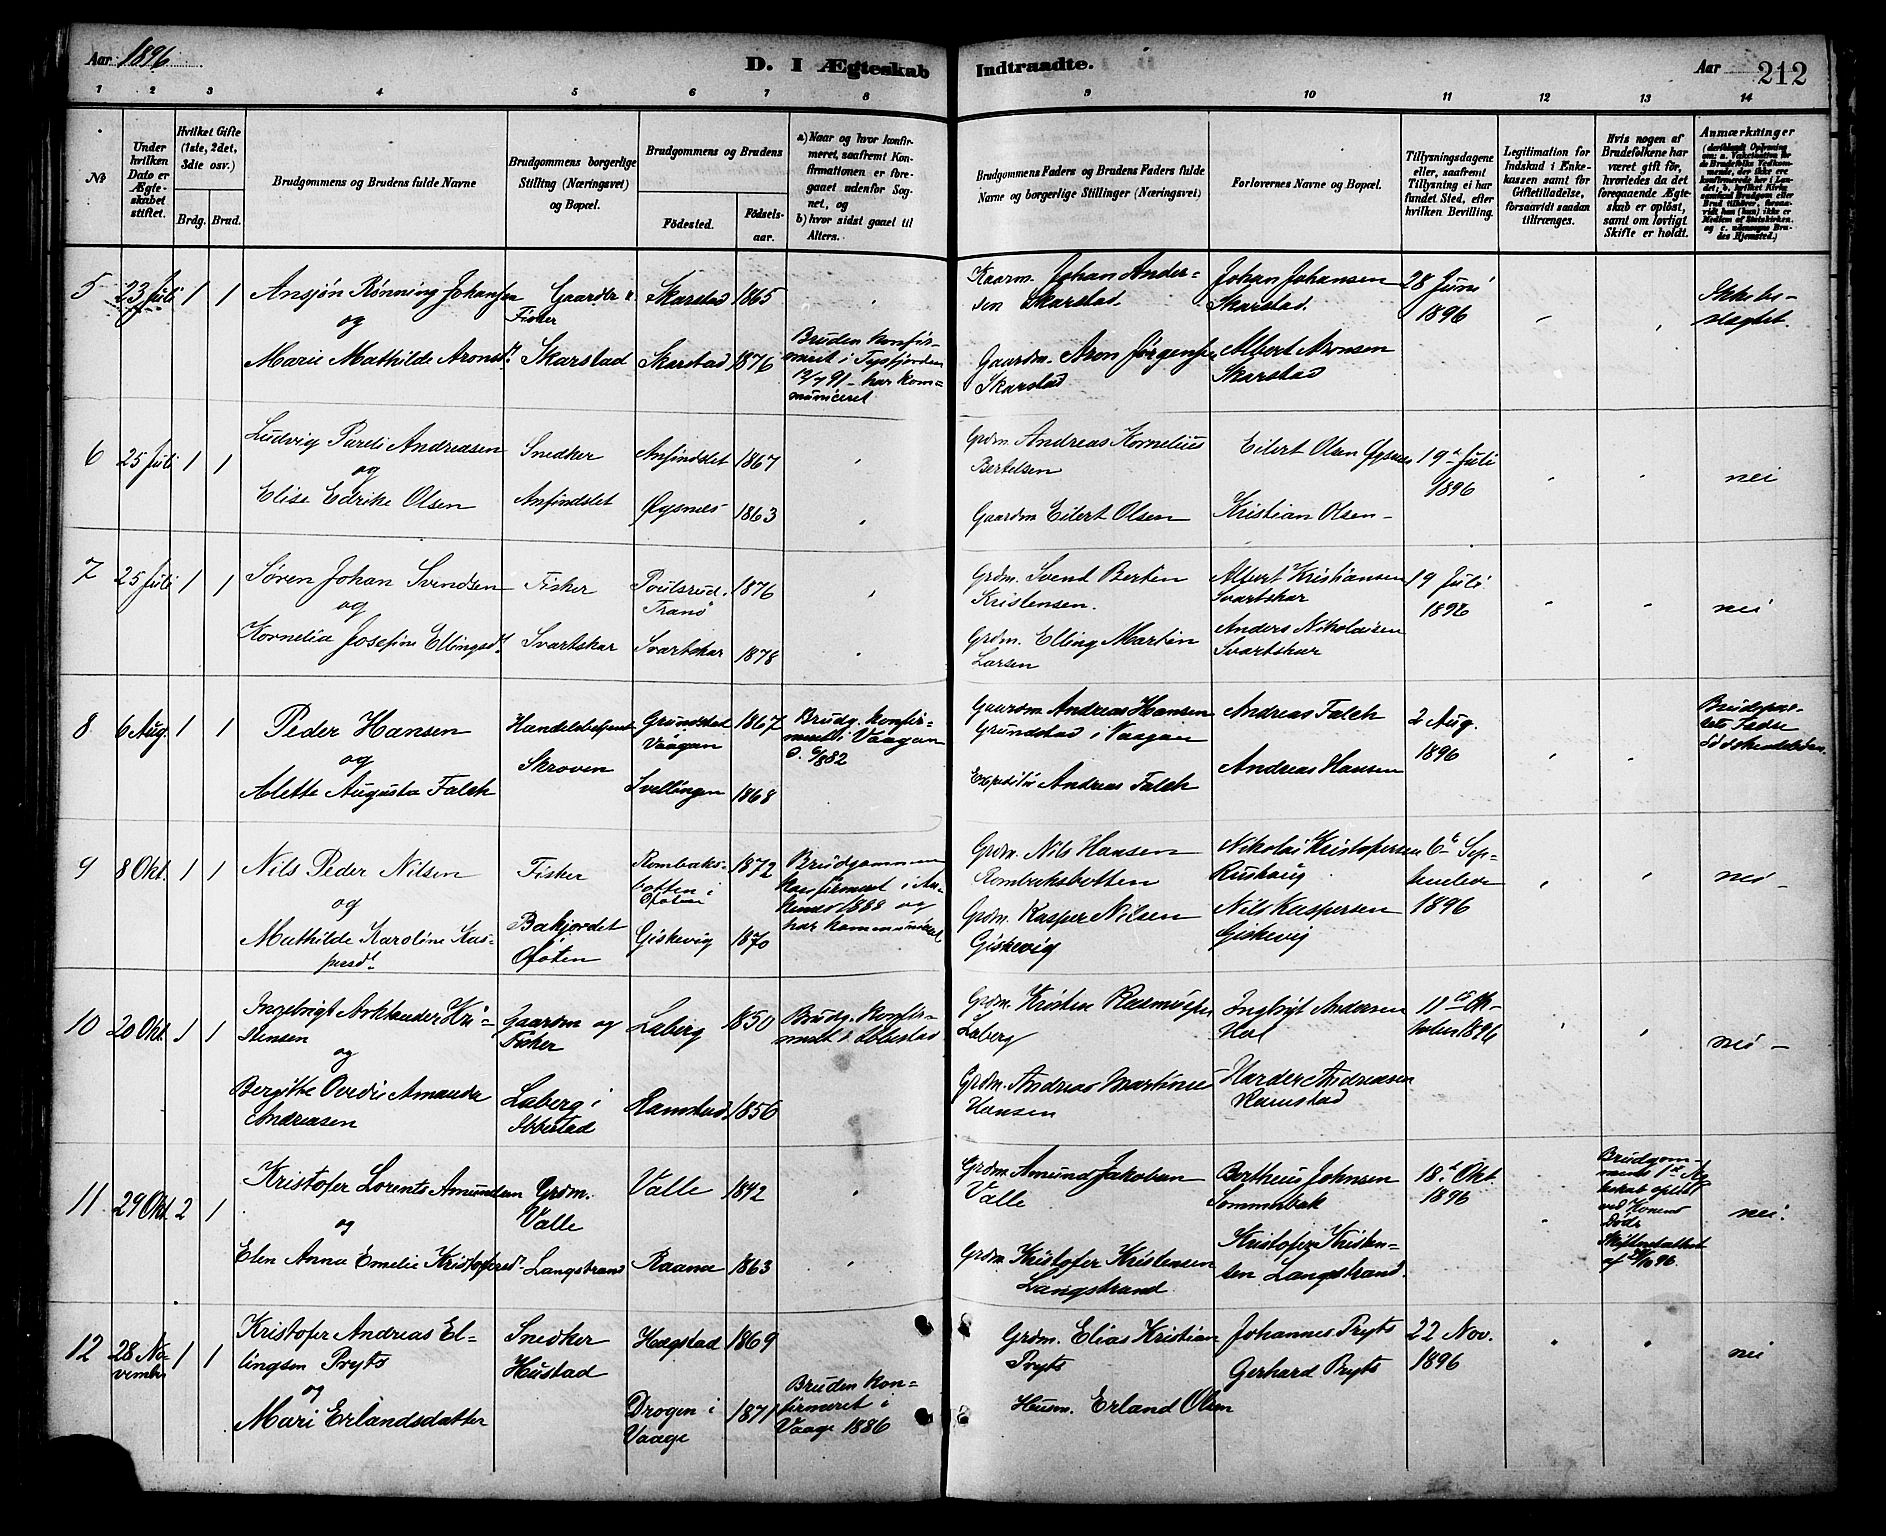 Aar 1896
D. I Ægteskab Indtraadte.
Aar 212
1 2 3 4 5 6 7 8 9 10 11 12 13 14
No
Under hvilken Dato er Ægteskabet stiftet.
Hvilket Gifte (1ste, 2det, 3die osv.)
Brdg. Brud.
Brudgommens og Brudens fulde Navne
Brudgommens borgerlige Stilling (Næringsvei) og Bopæl.
Brudgommens og Brudens
Födested. Födselsaar.
a) Naar og hvor konfirmeret, saafremt Konfirmationen er foregaaet udenfor Sognet, og
b) hvor sidst gaaet til Alters.
Brudgommens Faders og Brudens Faders fulde Navne og borgerlige Stillinger (Næringsvei)
Forlovernes Navne og Bopæl.
Tillysningsdagene eller, saafremt Tillysning ei har fundet Sted, efter hvilken Bevilling.
Legitimation for Indskud i Enkekassen samt for Giftetilladelse, forsaavidt saadan tiltrænges.
Hvis nogen af Brudefolkene har været gift för, hvorledes da det foregaaende Ægteskab er oplöst, samt om lovligt Skifte er holdt.
Anmærkninger
5 23 Juli 1 1 Ansjøn Rønning Johansen Gaardbr. & Fisker Skarstad 1865
og
Marie Mathilde Aronsdt. Skarstad Skarstad 1876 Bruden konfirmeret i Tysfjorden 12/7 91 – har kommuniceret
Gaardm. Johan Andersen Skarstad Johan Johansen Skarstad. 28 Juni 1896 Ikke beslægtet.
Gaardm. Aron Jørgensen Skarstad Albert Aronsen Skarstad
6 25 Juli 1 1 Ludvig Pareli Andreasen Snedker Anfindslet 1867
og
Elise Edrike Olsen Anfindslet Øysnes 1863
Grdm. Andreas Kornelius Bertelsen Eilert Olsen Øysnes 19de Juli 1896 nei
Gaardm Eilert Olsen Kristian Olsen –
7 25 Juli 1 1 Søren Johan Svendsen Fisker Poulsrud. Tranö 1876
og
Kornelia Josefine Ellingsdt. Svartskar Svartskar 1878
Grdm. Svend Bertin Kristensen. Albert Kristiansen Svartskar 19 Juli 1896 nei
Grdm. Elling Martin Larsen Anders Nikolaisen Svartskar
8 6 Aug. 1 1 Peder Hansen Handelsbetjent Grundstad Vaagan 1867 Brudg. konfirmeret i Vaagan
og
Alette Augusta Falch Skroven Svellingen 1868
Gaardm Andreas Hansen Grundstad i Vaagan Andreas Falch 2 Aug. 1896
Expeditør Andreas Falch Andreas Hansen
9 8 Okt. 1 1 Nils Peder Nilsen Fisker Rombaksbotten i Ofoten 1872 Brudgommen konfirmeret i Ankenes 1888 og har kommuniceret
og
Mathilde Karoline Kaspersdt. Bakjordet Ofoten Giskevig 1870
Grdm. Nils Hansen Rombaksbotten Nikolai Kristofersen Rushaug 6te September 1896 nei –
Grdm. Kasper Nilsen Giskevig Nils Kaspersen Giskevig
10 20 Okt. 1 1 Ingebrigt Kristensen Gaardm og Fisker Laberg 1850 Brudg. konfirmeret i Ibbestad
og
Bergitte Overdi Amanda Andreasen Laberg i Ibbestad Ramstad 1856
Grdm. Kristen Rasmussen Laberg Ingbrigt Andersen Hol 11te Oktober 1896 nei –
Grdm. Andreas Martinus Hansen Harder Andreasen Ramstad
11 29 Okt. 2 1 Kristofer Lorents Amundsen Grdm. Valle Valle 1842
og
Elen Anna Emelie Kristofersdt. Langstrand Raana 1863
Grdm. Amund Jakobsen Valle Bertheus Johnsen Sommerbak 18de Okt. 1896 Brudgommens 1ste Ægteskab oplöst ved Konens Död. Skifteradattest af 28/10 96. nei.
Grdm. Kristofer Kristensen Langstrand Kristofer Kristensen Langstrand.
12 28 November 1 1 Kristofer Andreas Ellingsen Pryts Snedker Hustad Hægstad 1869
og
Mari Erlandsdatter Drogen i Vaage 1871 Bruden konfirmeret i Vaage 1886
Grdm. Elias Kristian Pryts Johannes Pryts 22 Nov. 1896 nei
Husm. Erland Olsen Gerhard Pryts